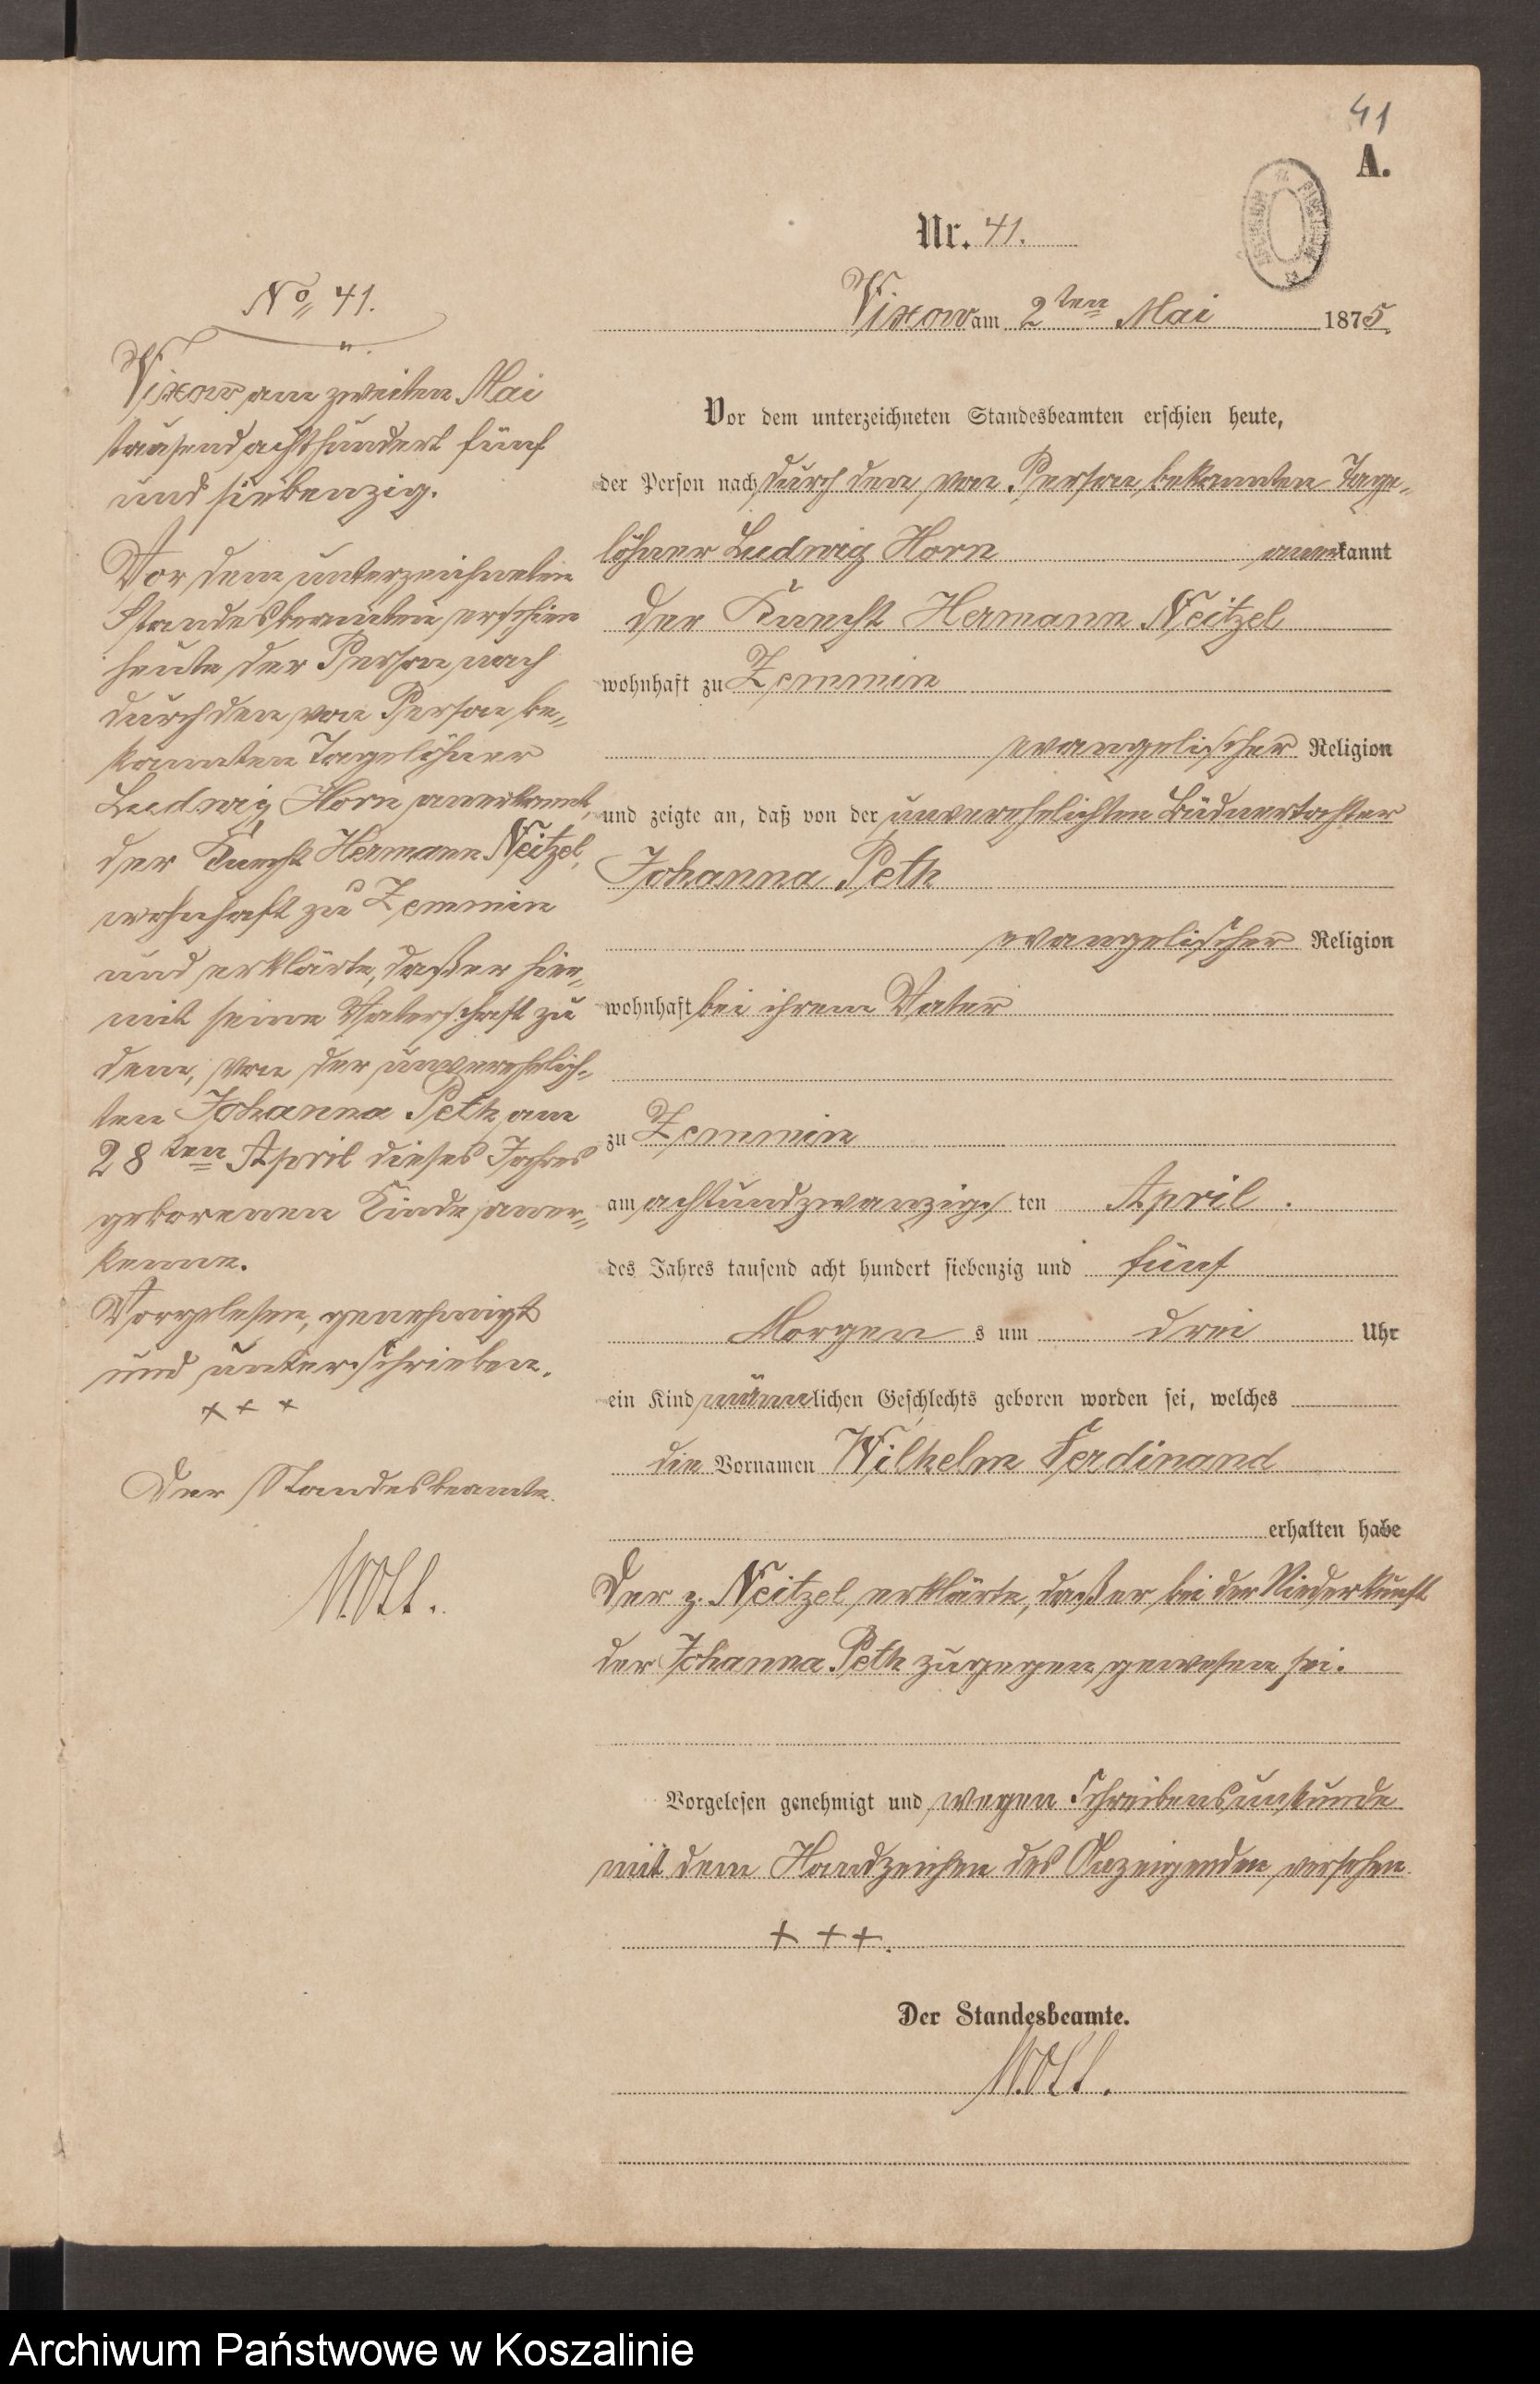 41
A.
Nr. 41.
Vixow am 2ten Mai 1875.
Vor dem unterzeichneten Standesbeamten erschien heute,
der Person nach durch den von Person bekannten Tage-
löhner Ludwig Horn anerkannt
der Knecht Hermann Neitzel
wohnhaft zu Zemmin
evangelischer Religion
und zeigte an, daß von der unverehelichten Büdnertochter
Johanna Peth
evangelischer Religion
wohnhaft bei ihrem Vater
zu Zemmin
am achtundzwanzigs ten April.
des Jahres tausend acht hundert siebenzig und fünf
Morgen s um drei Uhr
ein Kind männlichen Geschlechts geboren worden sei, welches
die Vornamen Wilhelm Ferdinand
erhalten habe
Der p. Neitzel erklärte, daß er bei der Niederkunft
der Johanna Peth zugegen gewesen sei.
Vorgelesen genehmigt und wegen Schreibensunkunde
mit dem Handzeichen des Anzeigenden versehen.
+ + +.
Der Standesbeamte.
No 41.
Vixow am zweiten Mai
tausend achthundert fünf
und siebenzig.
Vor dem unterzeichneten
Standesbeamten erschien
heute der Person nach
durch den von Person be-
kannten Tagelöhner
Ludwig Horn anerkannt,
der Knecht Hermann Neitzel,
wohnhaft zu Zemmin
und erklärte, daß er hier-
mit seine Vaterschaft zu
dem, von der unverehelich-
ten Johanna Peth am
28ten April dieses Jahres
geborenen Kinde aner-
kenne.
Vorgelesen, genehmigt
und unterschrieben.
+ + +
Der Standesbeamte.
Archiwum Państwowe w Koszalinie